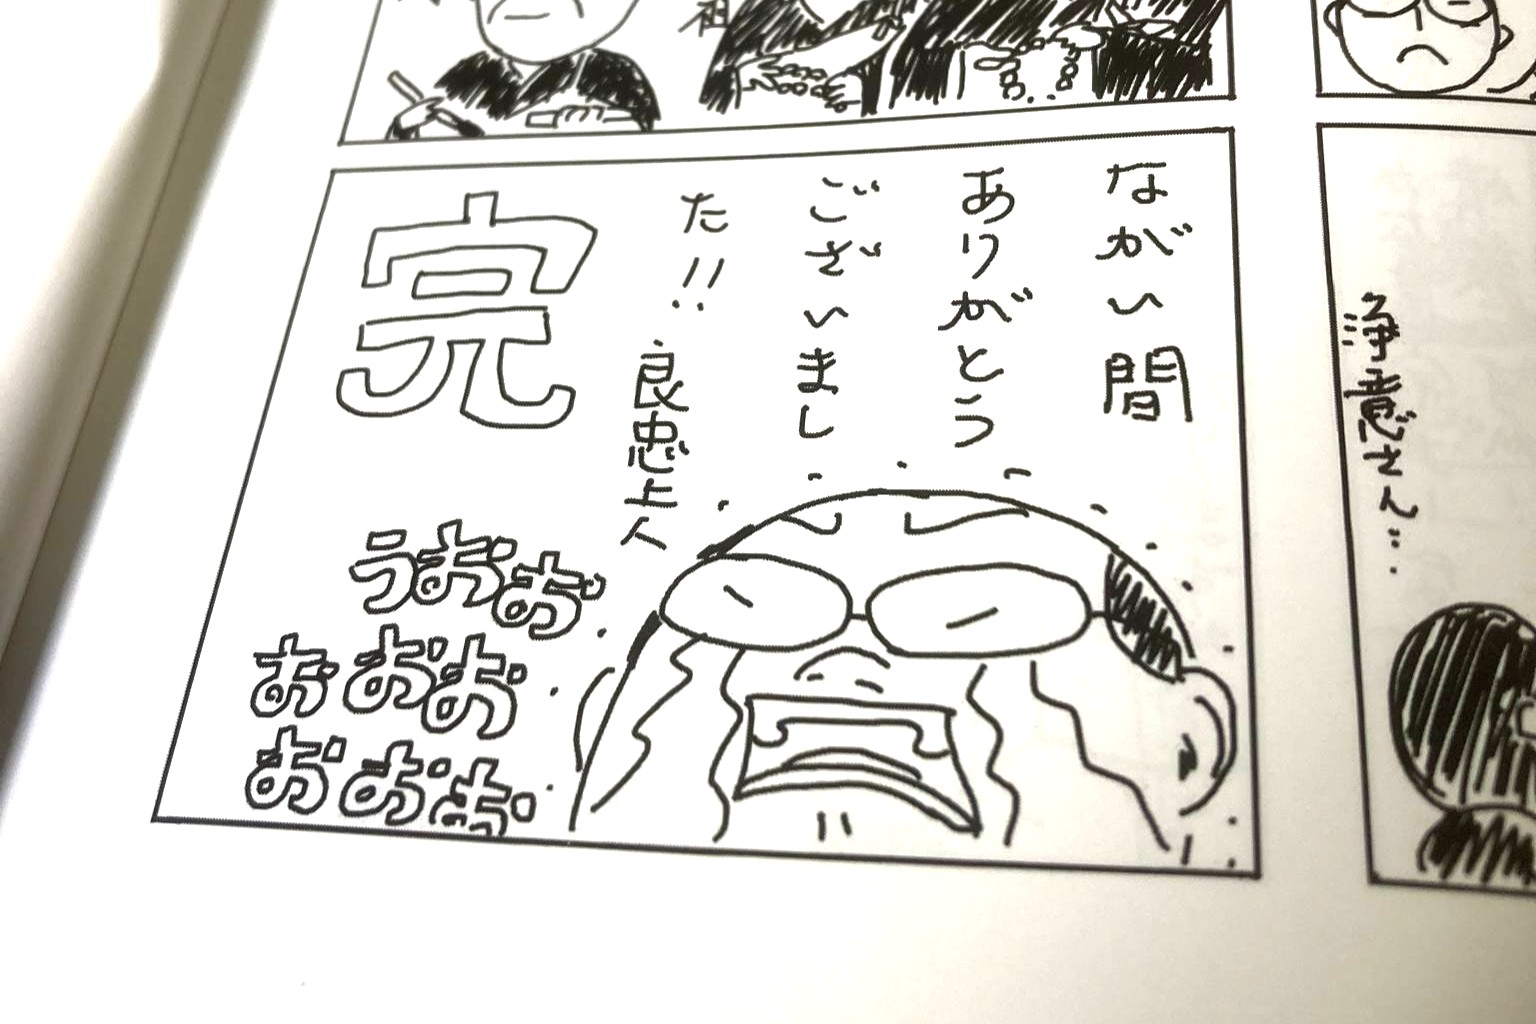 祖
浄意さん…
ながい間
ありがとう
ございまし
た!!
良忠上人
完
うおお
おおお
おおお